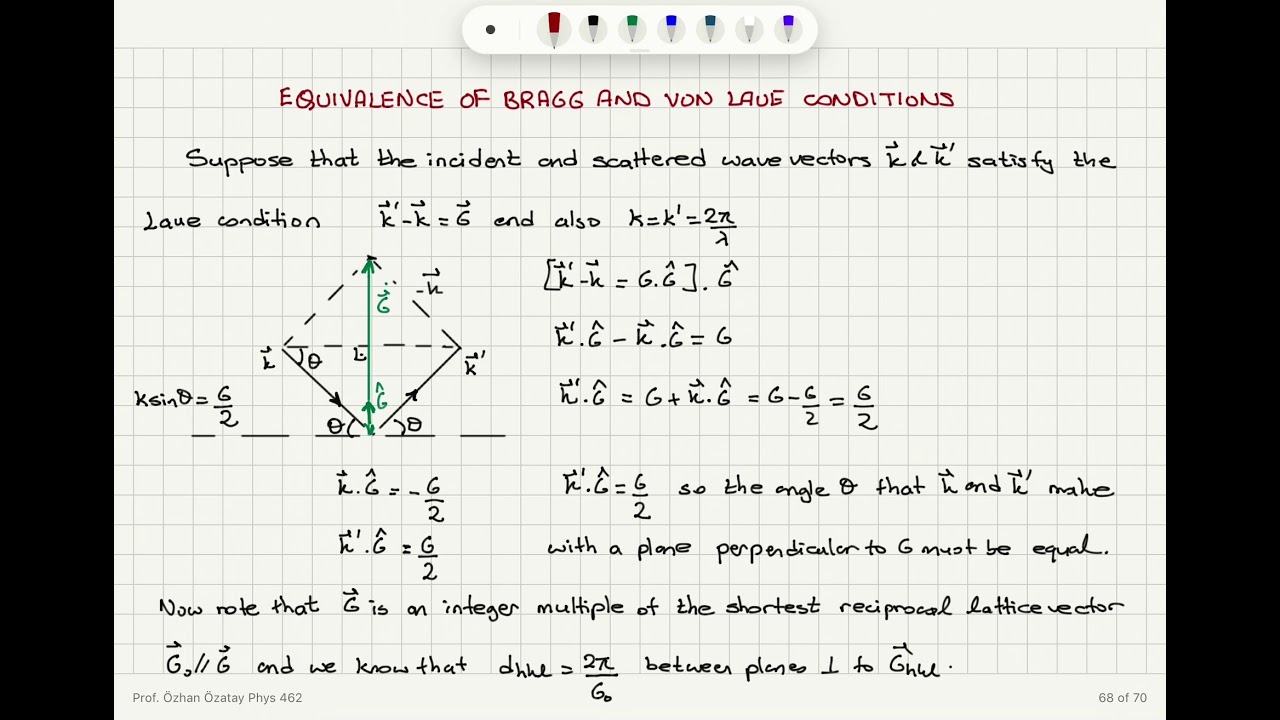 EQUIVALENCE OF BRAGG AND VON LAUE CONDITIONS
Suppose that the incident and scattered wave vectors k⃗ & k⃗' satisfy the
Laue condition k⃗' - k⃗ = G⃗ and also k = k' = 2π/λ
[k⃗' - k⃗ = G.Ĝ] . Ĝ
G⃗ -k⃗
k⃗'.Ĝ - k⃗.Ĝ = G
k⃗ θ k⃗'
k sinθ = G/2 Ĝ
k⃗'.Ĝ = G + k⃗.Ĝ = G - G/2 = G/2
θ θ
k⃗.Ĝ = - G/2
k⃗'.Ĝ = G/2 so the angle θ that k⃗ and k⃗' make
k⃗'.Ĝ = G/2
with a plane perpendicular to G must be equal.
Now note that G⃗ is an integer multiple of the shortest reciprocal lattice vector
G⃗₀ // G⃗ and we know that dhkl = 2π/G₀ between planes ⊥ to G⃗hkl.
Prof. Özhan Özatay Phys 462
68 of 70